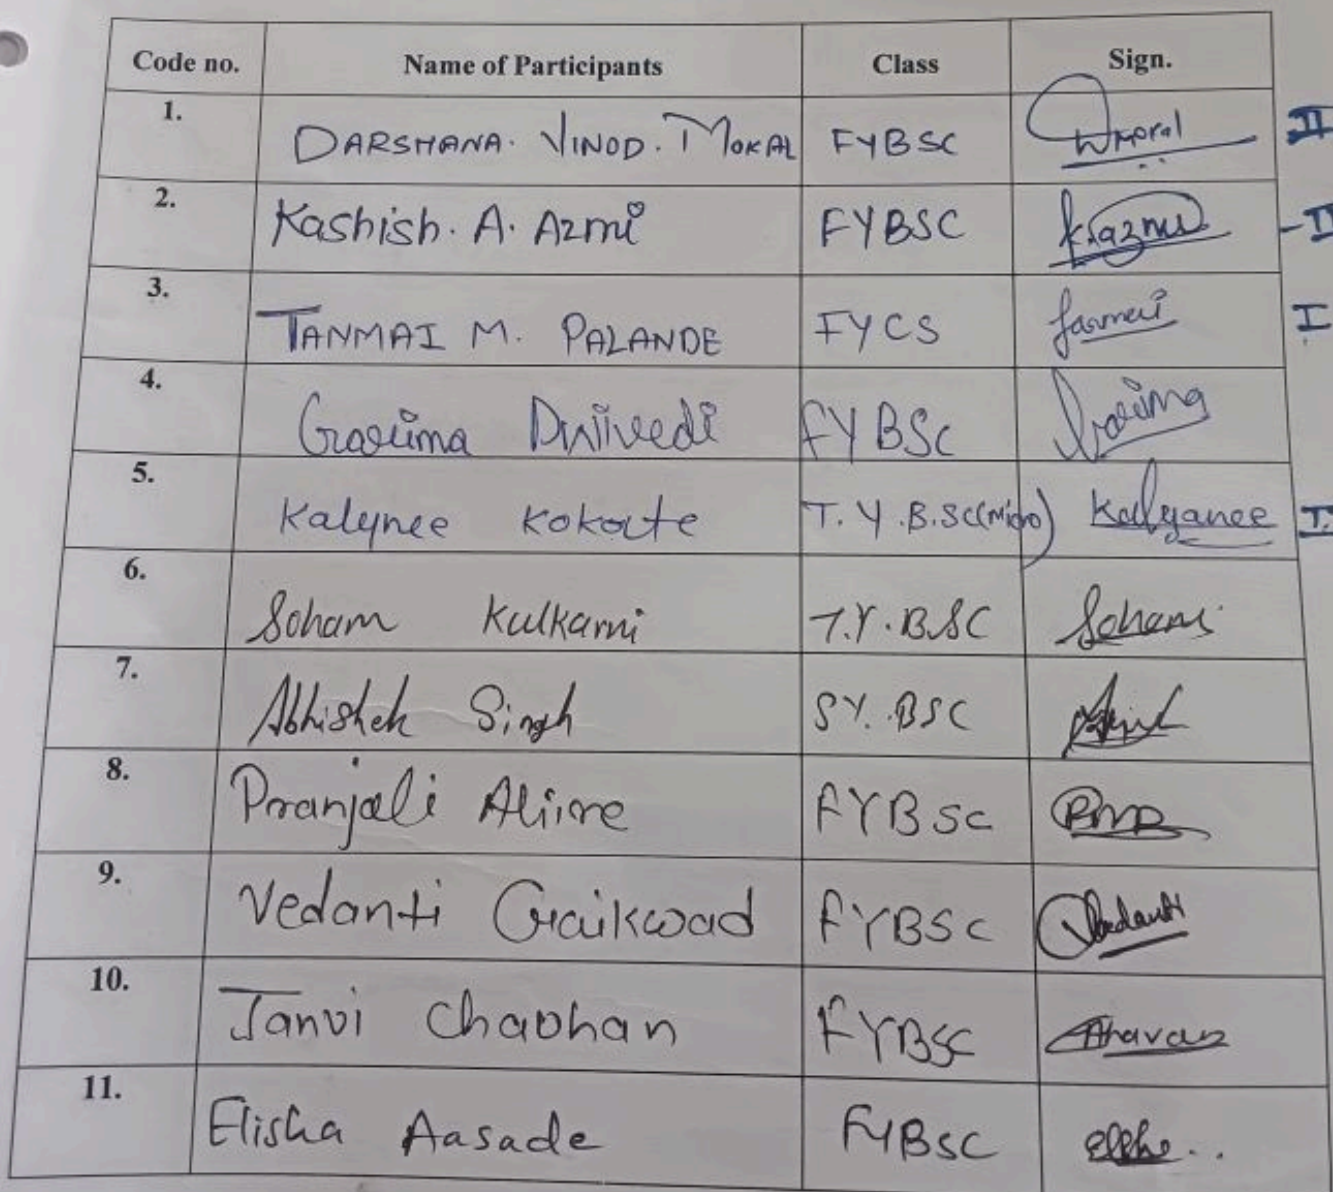 Code no. Name of Participants Class Sign.
1. DARSHANA. VINOD. MOKAL FYBSC II
2. Kashish. A. Azmi FYBSC Ksazmi
3. TANMAI M. PALANDE FYCS Tanmai I
4. Garima Dwivedi FYBSc Garima
5. Kalynee Kokate T.Y.B.Sc(Micro) Kalyanee
6. Soham Kulkarni T.Y.BSC Soham
7. Abhishek Singh SY.BSC
8. Pranjali FYBSC
9. Vedanti Gaikwad FYBSC Vedanti
10. Janvi Chavhan FYBSC Chavan
11. Elisha Aasade FYBSC